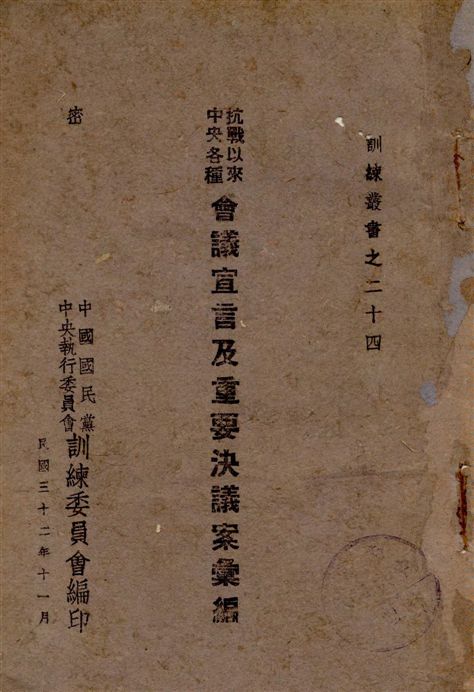 訓練叢書之二十四
抗戰以來
中央各種
會議宣言及重要決議案彙編
密
中國國民黨
中央執行委員會
訓練委員會編印
民國三十二年十一月